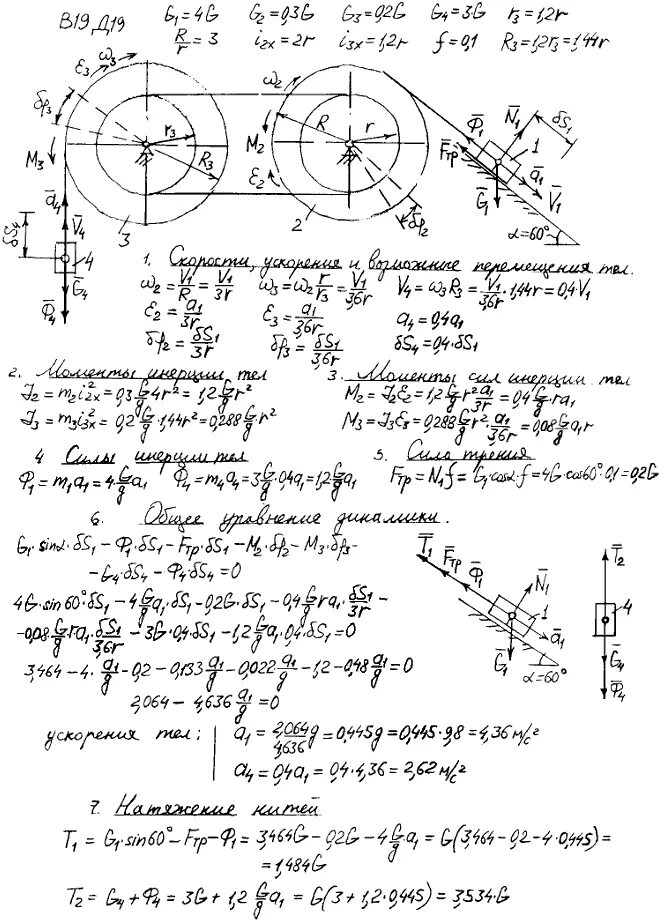 В19 Д19
G₁=4G G₂=0,3G G₃=0,2G G₄=3G r₃=1,2r
R/r=3 i₂ₓ=2r i₃ₓ=1,2r f=0,1 R₃=1,2r₃=1,44r
ε₃ ω₃ δφ₃ M₃ r₃ R₃ 3
ā₄ V̄₄ δS₄ 4 Ḡ₄ Φ̄₄
ω₂ M₂ R r ε₂ 2 δφ₂
Φ̄₁ N̄₁ δS₁ F̄тр 1 ā₁ Ḡ₁ V̄₁ α=60°
1. Скорости, ускорения и возможные перемещения тел.
ω₂=V₁/R=V₁/3r ω₃=ω₂ r/r₃=V₁/3,6r V₄=ω₃R₃=V₁/3,6r·1,44r=0,4V₁
ε₂=a₁/3r ε₃=a₁/3,6r a₄=0,4a₁
δφ₂=δS₁/3r δφ₃=δS₁/3,6r δS₄=0,4·δS₁
2. Моменты инерции тел 3. Моменты сил инерции тел
J₂=m₂i²₂ₓ=0,3 G/g 4r²=1,2 G/g r² M₂=J₂ε₂=1,2 G/g r² a₁/3r=0,4 G/g·ra₁
J₃=m₃i²₃ₓ=0,2 G/g·1,44r²=0,288 G/g r² M₃=J₃ε₃=0,288 G/g r²·a₁/3,6r=0,08 G/g a₁r
4 Силы инерции тел 5. Сила трения
Φ₁=m₁a₁=4 G/g a₁ Φ₄=m₄a₄=3 G/g·0,4a₁=1,2 G/g a₁ Fтр=N₁f=G₁·cosα·f=4G·cos60°·0,1=0,2G
6. Общее уравнение динамики.
G₁·sinα·δS₁−Φ₁·δS₁−Fтр·δS₁−M₂·δφ₂−M₃·δφ₃−
−G₄·δS₄−Φ₄·δS₄=0
4G·sin60°·δS₁−4 G/g a₁·δS₁−0,2G·δS₁−0,4 G/g ra₁·δS₁/3r−
−0,08 G/g ra₁·δS₁/3,6r−3G·0,4·δS₁−1,2 G/g a₁·0,4·δS₁=0
3,464−4·a₁/g−0,2−0,133 a₁/g−0,022 a₁/g−1,2−0,48 a₁/g=0
2,064−4,636 a₁/g=0
T̄₁ F̄тр Φ̄₁ N̄₁ 1 ā₁ Ḡ₁ α=60°
T̄₂ 4 Ḡ₄ Φ̄₄
ускорения тел: a₁=2,064/4,636 g=0,445g=0,445·9,8=4,36 м/с²
a₄=0,4a₁=0,4·4,36=2,62 м/с²
7. Натяжение нитей
T₁=G₁·sin60°−Fтр−Φ₁=3,464G−0,2G−4 G/g a₁=G(3,464−0,2−4·0,445)=
=1,484G
T₂=G₄+Φ₄=3G+1,2 G/g a₁=G(3+1,2·0,445)=3,534·G